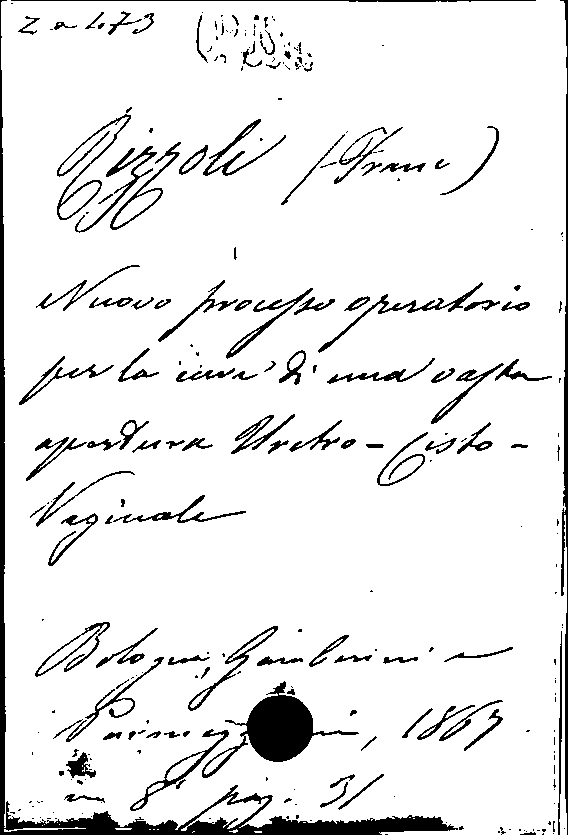 Z a 473
Rizzoli (Franc)
Nuovo processo operatorio
per la cura di una vasta
apertura Uretro-Cisto-
Vaginale
Bologna, Gamberini e
Parmeggiani, 1867
in 8° pag. 31